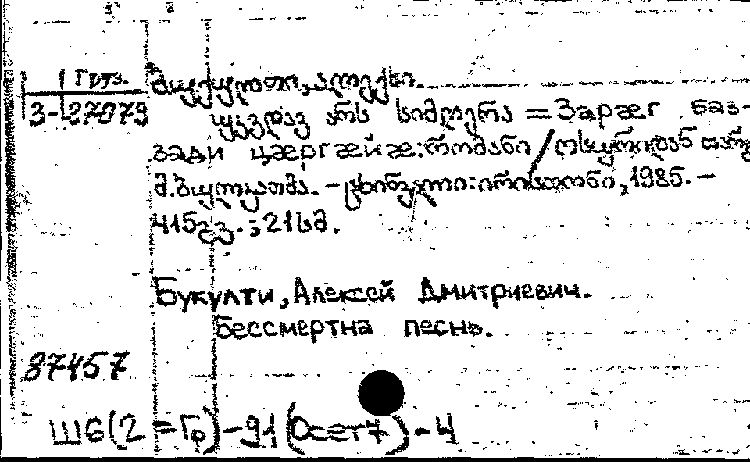 Груз.
3-27079
ბუკულთი, ალექსი.
უკვდავ არს სიმღერა = Зарæг баз-
зади цæргæйæ: რომანი / ოსურიდან თარგ.
მ. ბულკათმა. – ცხინვალი: ირისთონი, 1985. –
415გვ. ; 21სმ.
Букулти, Алексей Дмитриевич.
Бессмертна песнь.
87457
Ш6(2=Гр)-91(Осет7)-4